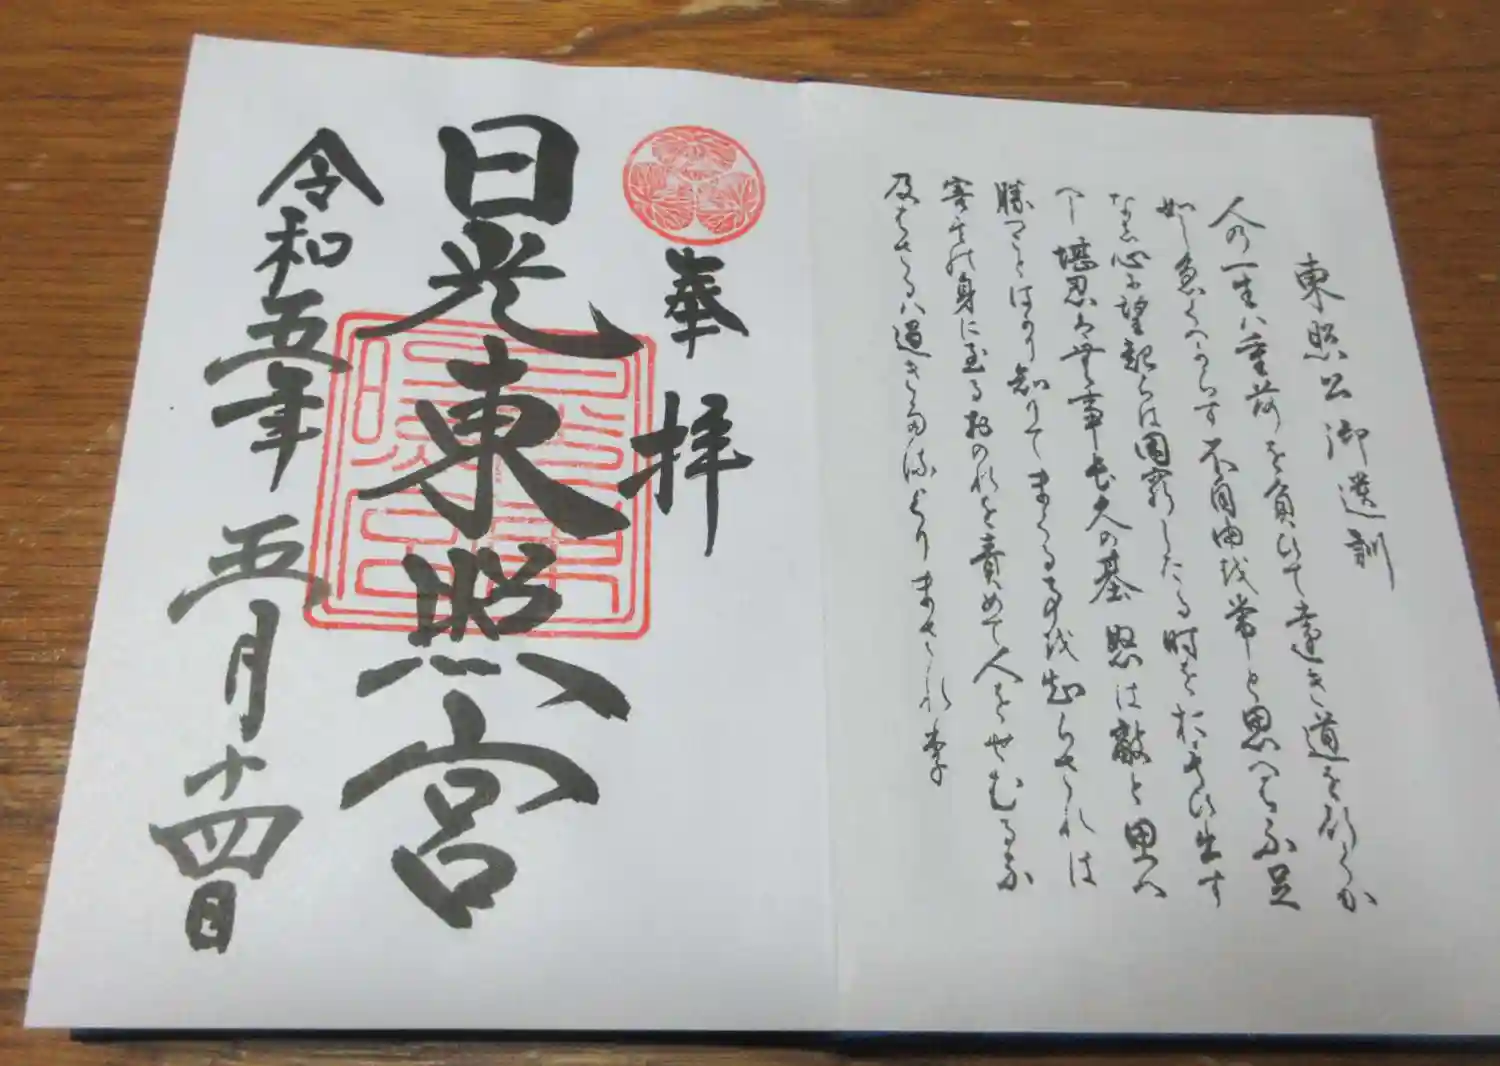 東照公御遺訓
人の一生は重荷を負ひて遠き道を行くか
如し急くへからす不自由を常と思へは不足
なし心に望起らは困窮したる時を思ひ出す
へし堪忍は無事長久の基怒は敵と思へ
勝つことはかり知りてまくる事を知らされは
害其の身に至るおのれを責めて人をせむるな
及はさるは過きたるよりまされり
奉拝
日光東照宮
令和五年五月十四日